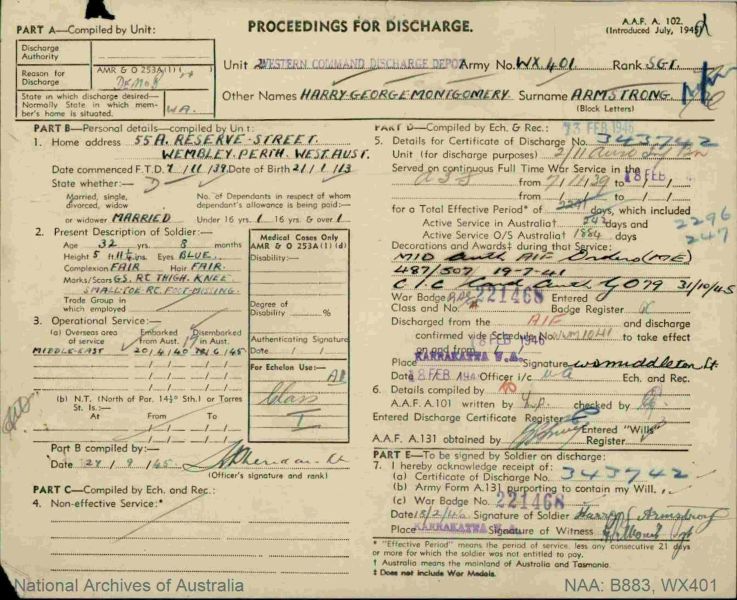 PROCEEDINGS FOR DISCHARGE.
A.A.F. A. 102.
(Introduced July, 1945)
PART A—Compiled by Unit:
Discharge Authority
Reason for Discharge AMR & O 253A(1)( ) DEMOB
State in which discharge desired— Normally State in which member's home is situated. W.A.
Unit WESTERN COMMAND DISCHARGE DEPOT Army No. WX 401 Rank SGT
Other Names HARRY GEORGE MONTGOMERY Surname ARMSTRONG
(Block Letters)
PART B—Personal details—compiled by Unit:
1. Home address 55A. RESERVE STREET.
WEMBLEY. PERTH. WEST. AUST.
Date commenced F.T.D. 7/11/39 Date of Birth 21/1/13
State whether:—
Married, single, divorced, widow or widower MARRIED
No. of Dependants in respect of whom dependant's allowance is being paid:—
Under 16 yrs. 1 & over 1
2. Present Description of Soldier:—
Age 32 yrs. 8 months
Height 5 ft. 11 ins. Eyes BLUE.
Complexion FAIR Hair FAIR.
Marks/Scars GS. RC THIGH. KNEE.
SMALL TOE RC. FOOT MISSING.
Trade Group in which employed
Medical Cases Only
AMR & O 253A(1)(d)
Disability:—
Degree of Disability
Authenticating Signature
Date / /
For Echelon Use:—
Class
I
3. Operational Service:—
(a) Overseas area of service
Embarked from Aust.
Disembarked in Aust.
MIDDLE-EAST 20/4/40 /6/45
(b) N.T. (North of Par. 14½° Sth.) or Torres St. Is.:—
At From To
Part B compiled by:
Date 27/9/45.
(Officer's signature and rank)
PART C—Compiled by Ech. and Rec.:
4. Non-effective Service:*
PART D—Compiled by Ech. & Rec.: 13 FEB 1946
5. Details for Certificate of Discharge No. 343742
Unit (for discharge purposes) 2/11
Served on continuous Full Time War Service in the
from 7/11/39 to 18 FEB
from to
for a Total Effective Period* of days, which included
Active Service in Australia† 243 days and
Active Service O/S Australia† 1884 days
2296
247
Decorations and Awards‡ during that Service:
MID auth AIF Orders (ME)
487/507 19-7-41
C/C Card auth GO 79 31/10/45
War Badge Class and No. 221468 Entered Badge Register
Discharged from the AIF and discharge
confirmed vide Schedule No. WM1041 to take effect
on and from 18 FEB 1946
Place KARRAKATTA W.A. Signature W D Middleton Lt
Date 18 FEB 1946 Officer i/c WA Ech. and Rec.
6. Details compiled by
A.A.F. A.101 written by checked by
Entered Discharge Certificate Register
A.A.F. A.131 obtained by Entered "Wills" Register
PART E—To be signed by Soldier on discharge:
7. I hereby acknowledge receipt of:
(a) Certificate of Discharge No. 343742
(b) Army Form A.131 purporting to contain my Will.
(c) War Badge No. 221468
Date 18/2/46 Signature of Soldier Harry G Armstrong
Place KARRAKATTA W.A. Signature of Witness
* "Effective Period" means the period of service, less any consecutive 21 days or more for which the soldier was not entitled to pay.
† Australia means the mainland of Australia and Tasmania.
‡ Does not include War Medals.
National Archives of Australia
NAA: B883, WX401